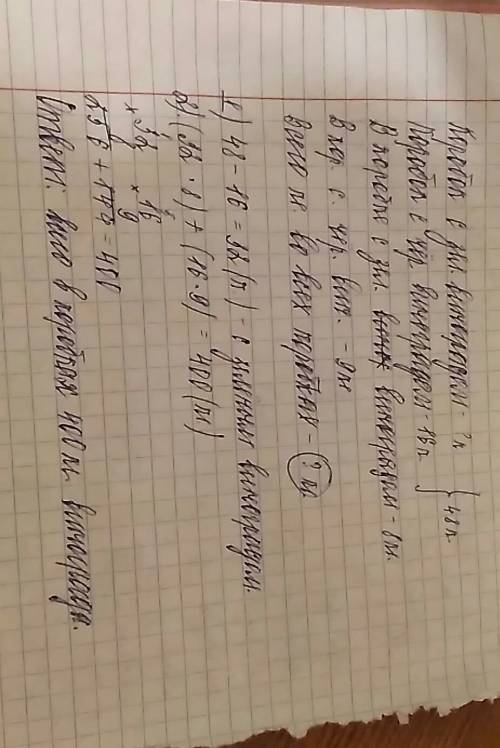 Коробки с зел. виноградом - ? к } 48 к
Коробки с чёр. виноградом - 16 к
В коробке с зел. виноградом - 8 кг.
В кор. с. чёр. вин. - 9 кг
Всего кг. во всех коробках - ? кг
1) 48 - 16 = 32 (к) - с зелёным виноградом.
2) (32 · 8) + (16 · 9) = 400 (кг)
× 32 × 16
8 9
256 + 144 = 400
Ответ: всего в коробках 400 кг винограда.